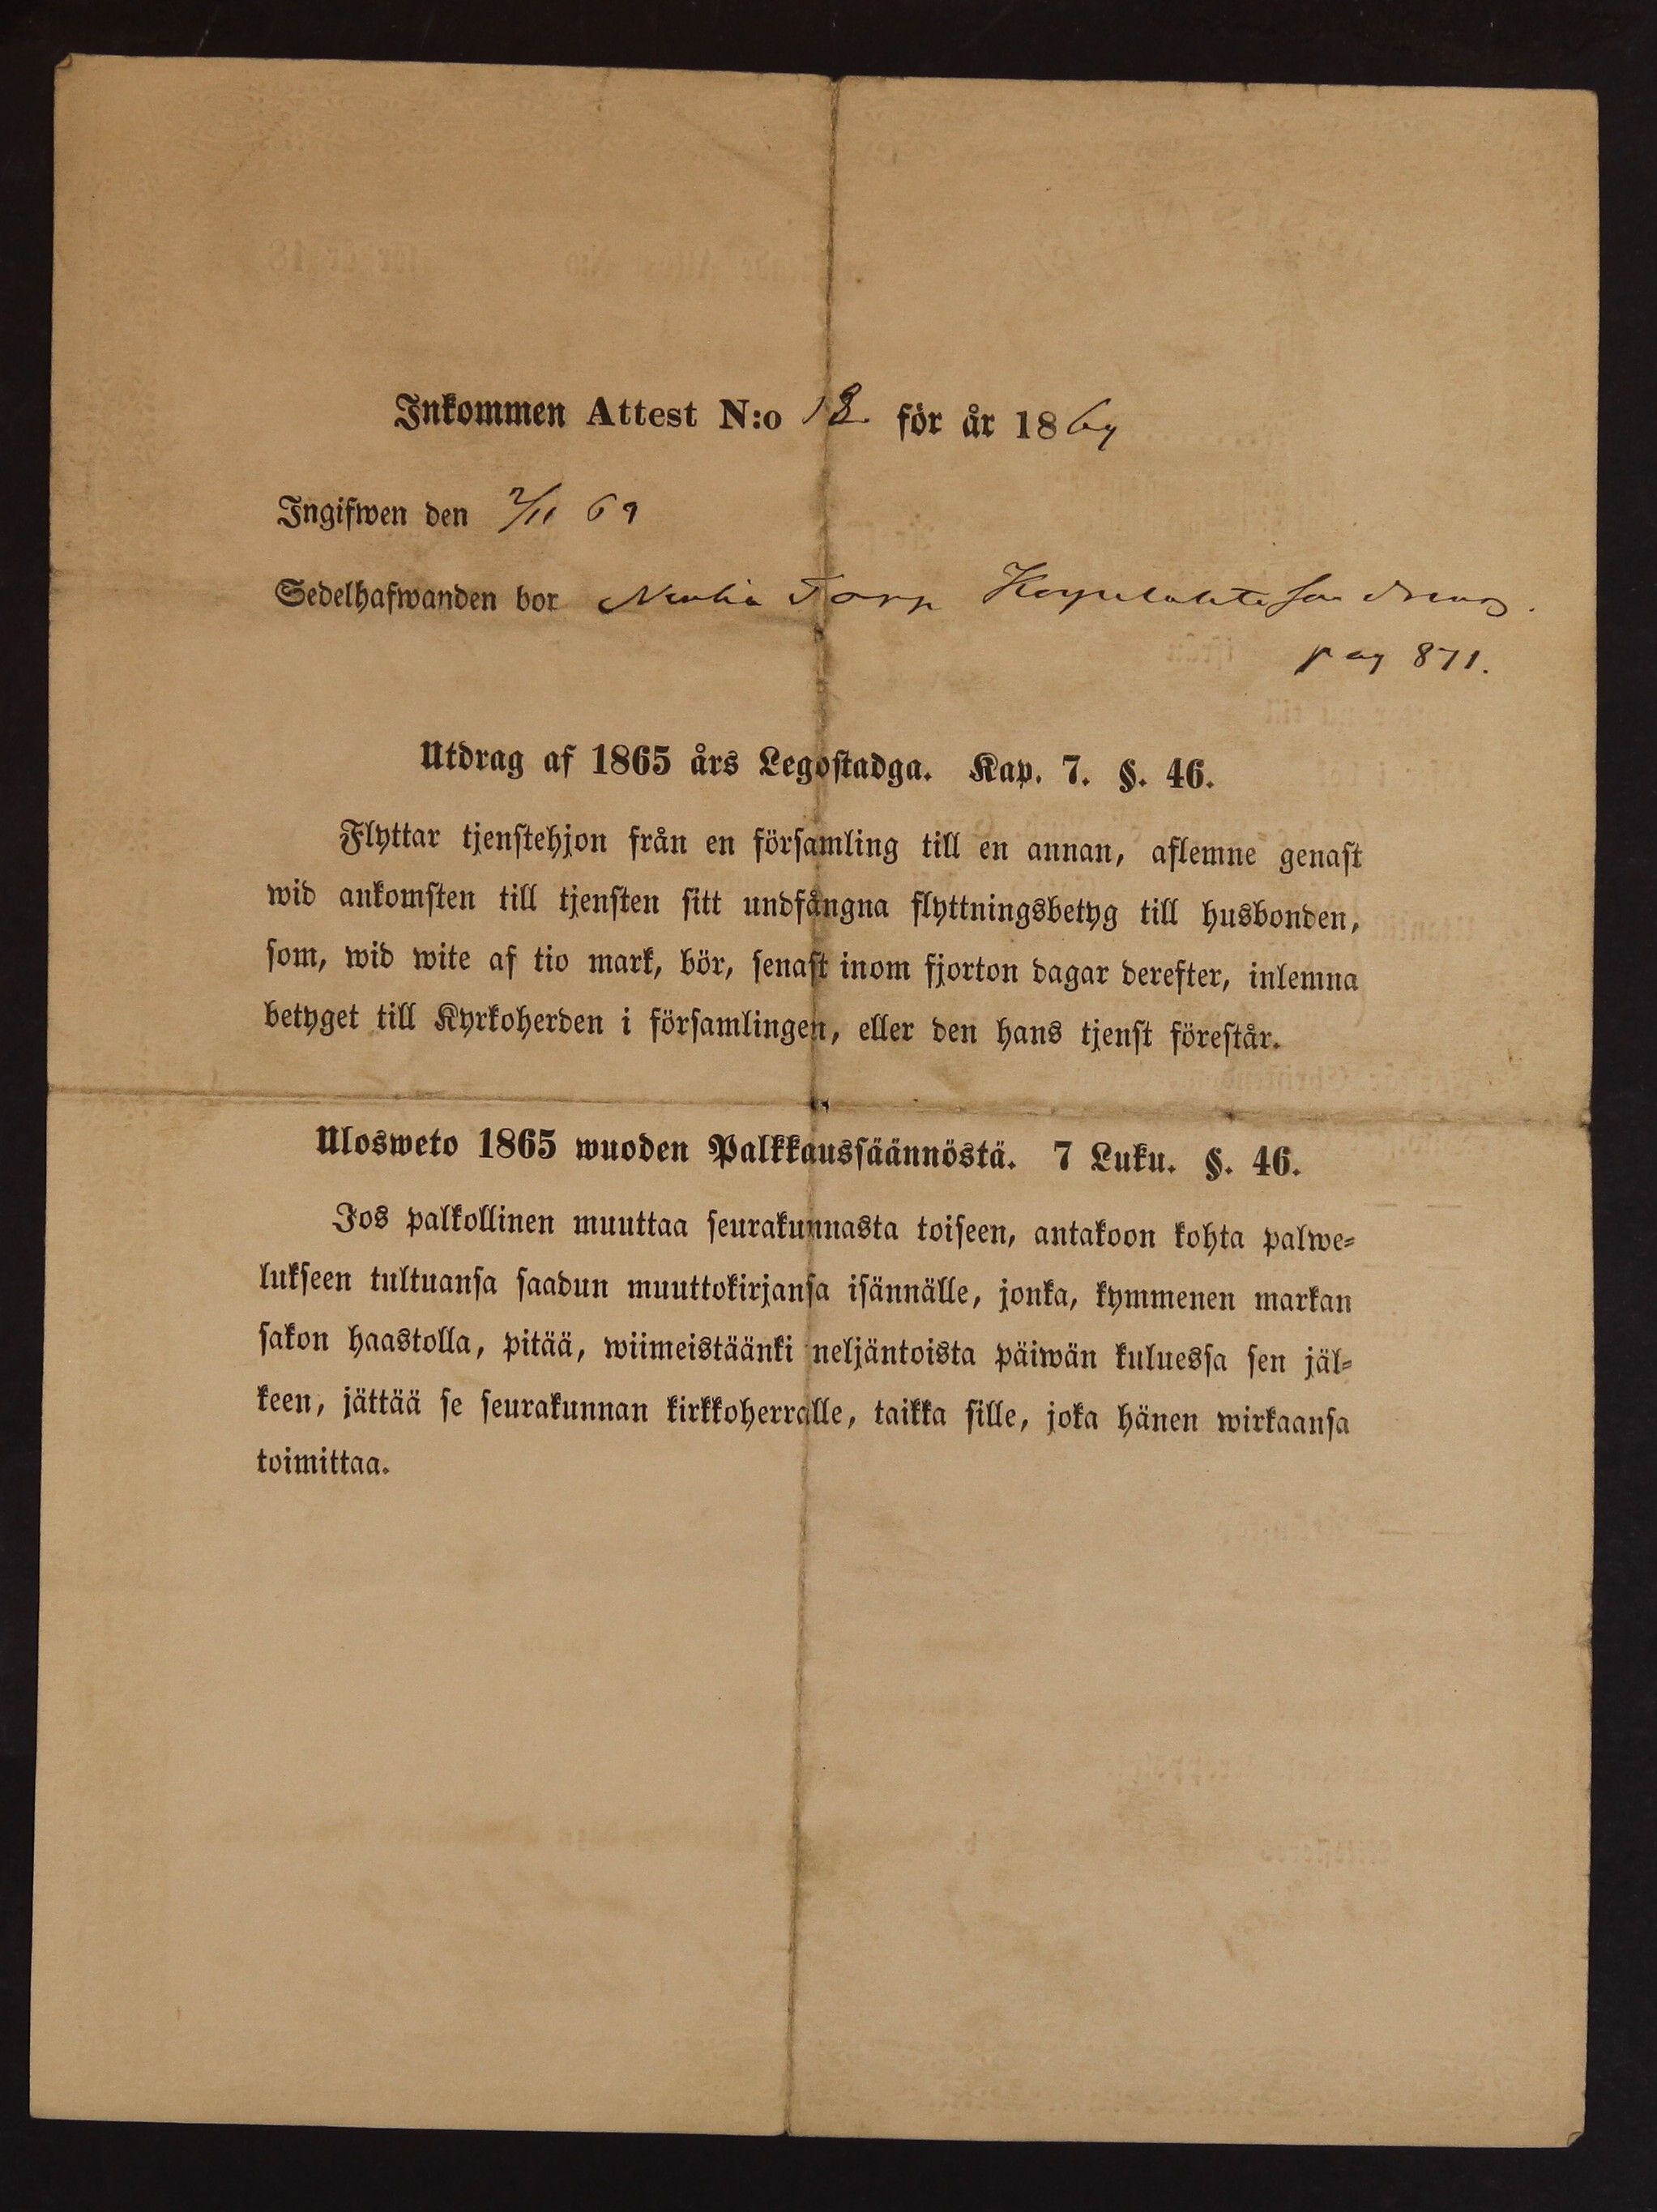 Inkommen Attest N:o 18. för år 1869
Ingifwen den 2/11 69
Sedelhafwanden bor Torp
pag 871.
Utdrag af 1865 års Legostadga. Kap. 7. §. 46.
Flyttar tjenstehjon från en församling till en annan, aflemne genast
wid ankomsten till tjensten sitt undfångna flyttningsbetyg till husbonden,
som, wid wite af tio mark, bör, senast inom fjorton dagar derefter, inlemna
betyget till Kyrkoherden i församlingen, eller den hans tjenst förestår.
Ulosweto 1865 wuoden Palkkaussäännöstä. 7 Luku. §. 46.
Jos palkollinen muuttaa seurakunnasta toiseen, antakoon kohta palwe-
lukseen tultuansa saadun muuttokirjansa isännälle, jonka, kymmenen markan
sakon haastolla, pitää, wiimeistäänki neljäntoista päiwän kuluessa sen jäl-
keen, jättää se seurakunnan kirkkoherralle, taikka sille, joka hänen wirkaansa
toimittaa.